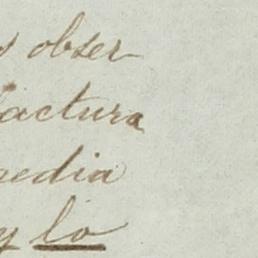 s obser-
factura
media
y lo